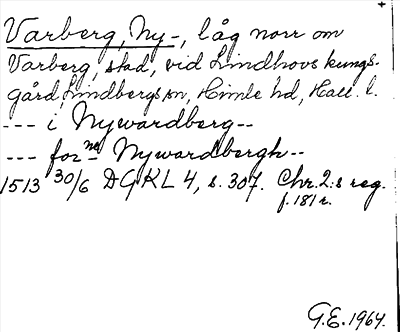 Varberg, Ny-, låg norr om
Varberg, stad, vid Lindhovs kungs-
gård, Lindbergs sn, Himle hd, Hall. l.
--- i Nywardberg--
--- for ne Nywardbergh--
1513 30/6 DGKL 4, s. 307. Chr. 2:s reg.
f. 181 r.
G.E. 1964.